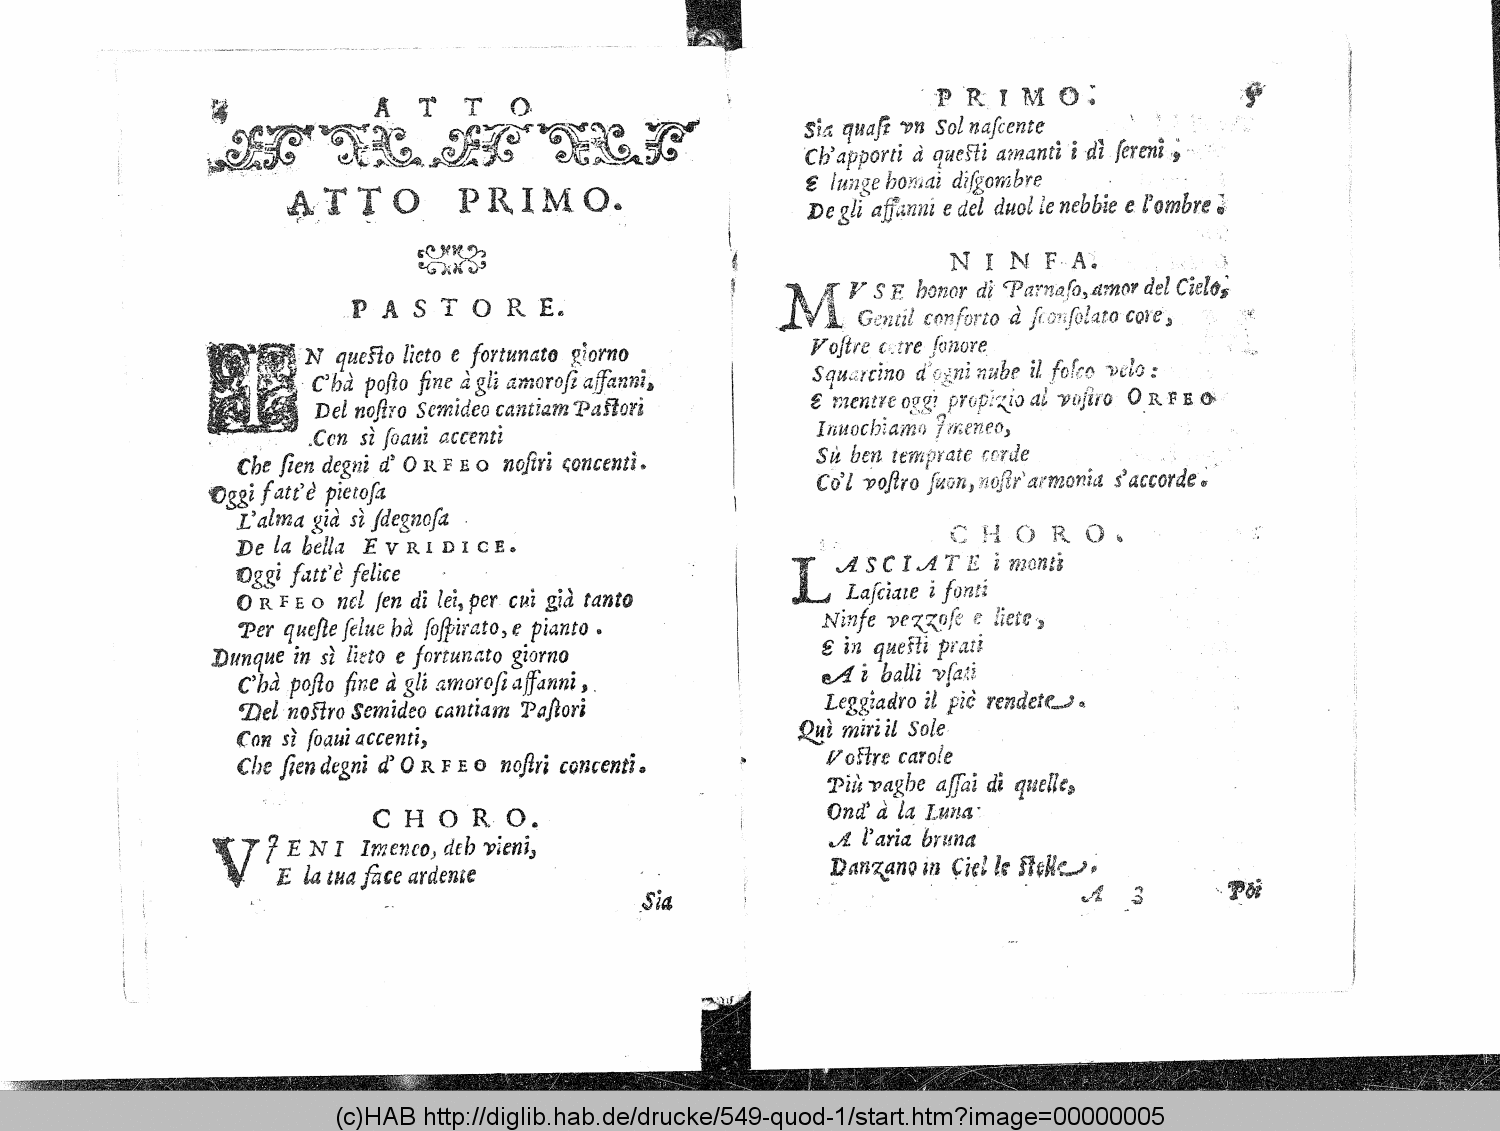 4 ATTO
ATTO PRIMO.
PASTORE.
IN questo lieto e fortunato giorno
C'hà posto fine à gli amorosi affanni,
Del nostro Semideo cantiam Pastori
Con sì soaui accenti
Che sien degni d'ORFEO nostri concenti.
Oggi fatt'è pietosa
L'alma già sì sdegnosa
De la bella EVRIDICE.
Oggi fatt'è felice
ORFEO nel sen di lei, per cui già tanto
Per queste selue hà sospirato, e pianto.
Dunque in sì lieto e fortunato giorno
C'hà posto fine à gli amorosi affanni,
Del nostro Semideo cantiam Pastori
Con sì soaui accenti,
Che sien degni d'ORFEO nostri concenti.
CHORO.
VIENI Imeneo, deh vieni,
E la tua face ardente
Sia
PRIMO. 5
Sia quasi vn Sol nascente
Ch'apporti à questi amanti i dì sereni;
E lunge homai disgombre
De gli affanni e del duol le nebbie e l'ombre.
NINFA.
MVSE honor di Parnaso, amor del Cielo,
Gentil conforto à sconsolato core,
Vostre cetre sonore
Squarcino d'ogni nube il fosco velo:
E mentre oggi propizio al vostro ORFEO
Inuochiamo Imeneo,
Sù ben temprate corde
Co'l vostro suon, nostr'armonia s'accorde.
CHORO.
LASCIATE i monti
Lasciate i fonti
Ninfe vezzose e liete,
E in questi prati
A i balli vsati
Leggiadro il piè rendete.
Quì miri il Sole
Vostre carole
Più vaghe assai di quelle,
Ond'à la Luna
A l'aria bruna
Danzano in Ciel le stelle.
A 3 Poi
(c)HAB http://diglib.hab.de/drucke/549-quod-1/start.htm?image=00000005